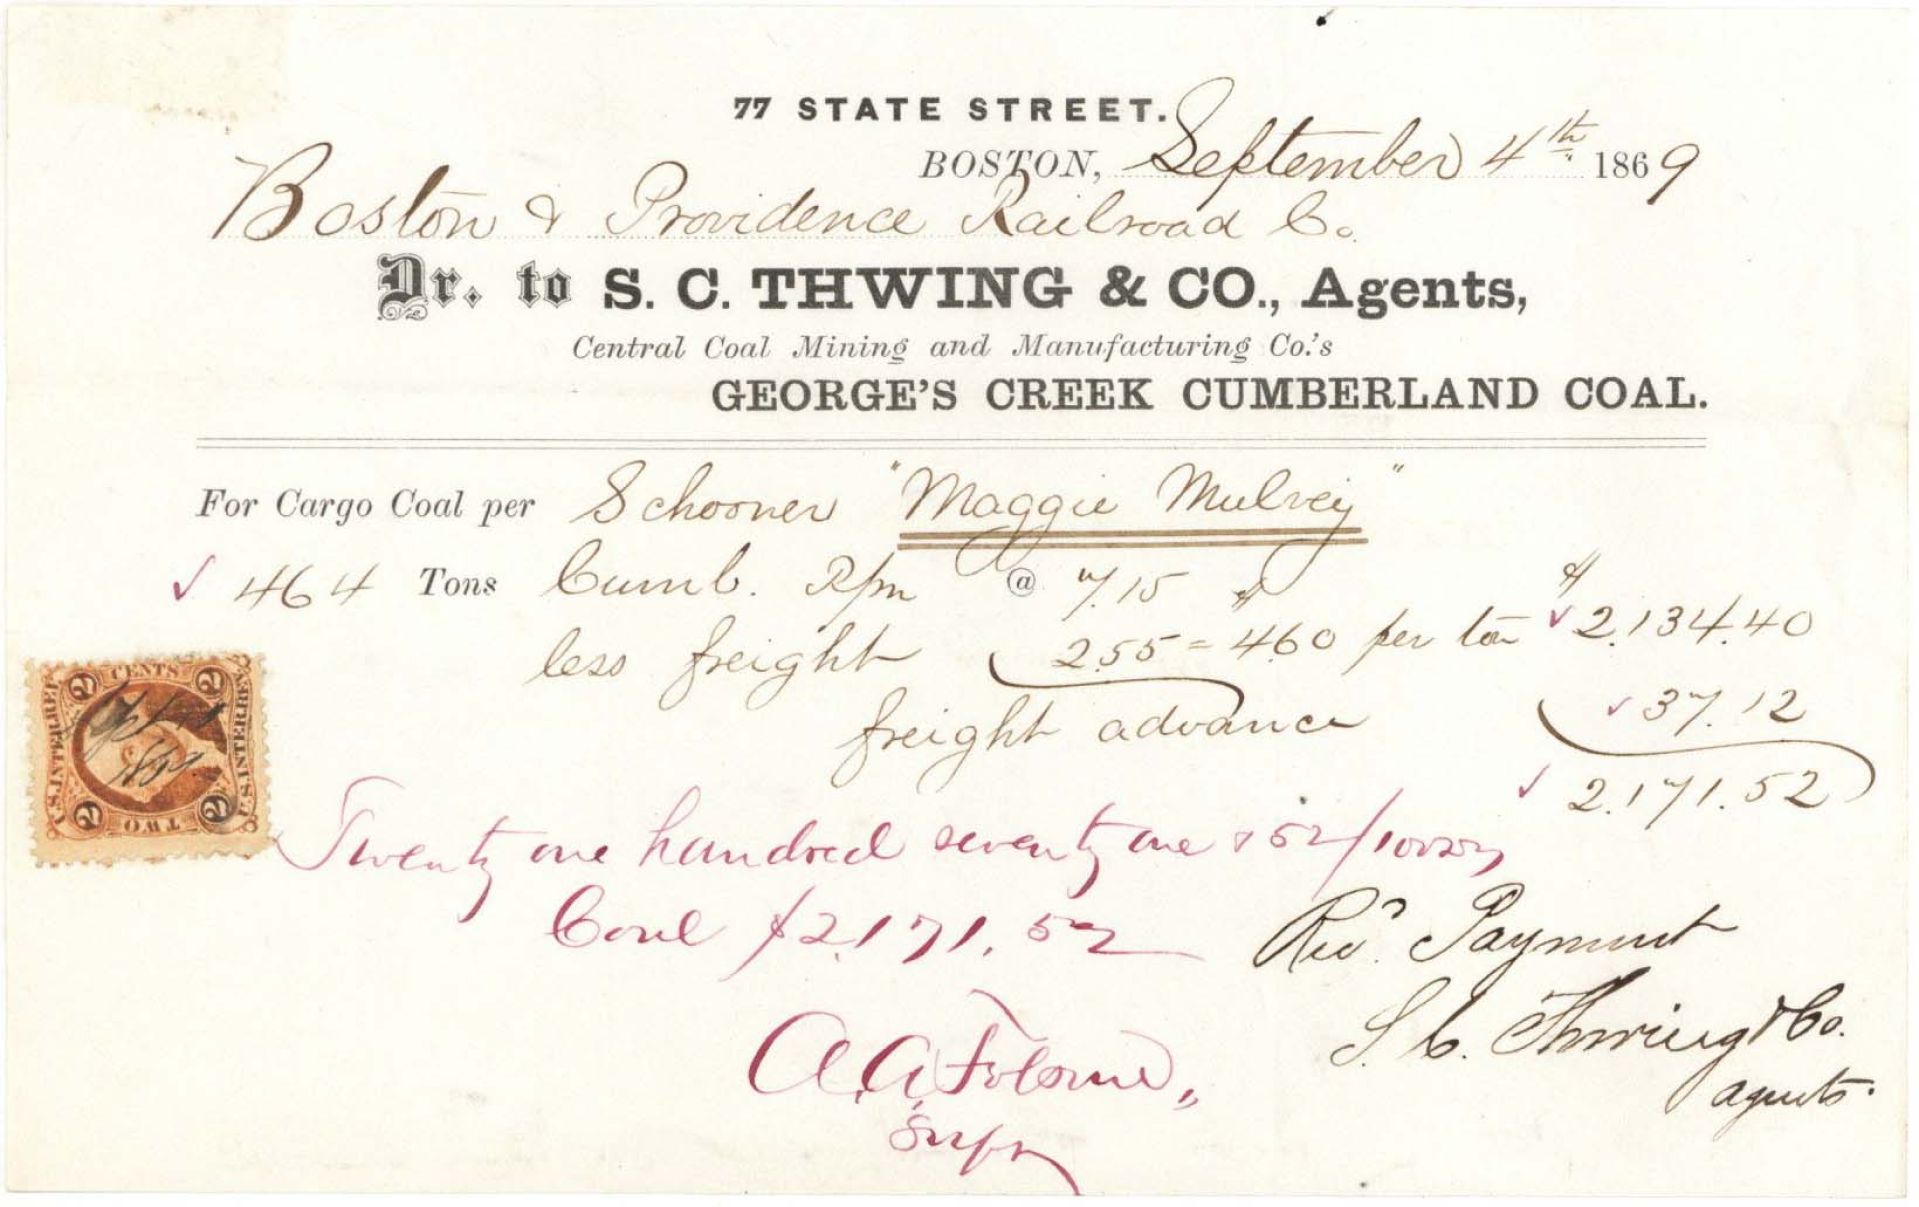 77 STATE STREET.
BOSTON, September 4th 1869
Boston & Providence Railroad Co.
Dr. to S. C. THWING & CO., Agents,
Central Coal Mining and Manufacturing Co.'s
GEORGE'S CREEK CUMBERLAND COAL.
For Cargo Coal per Schooner "Maggie Mulvey"
464 Tons Cumb. @ 7.15 $ $
less freight 2.55 = 4.60 per ton 2.134.40
freight advance 37.12
2.171.52
Twenty one hundred seventy one & 52/100
Coal $2,171.52
Recd. Payment
S. C. Thwing & Co.
agents.
A. A. Folsom,
Supt
2 CENTS 2
U.S. INTER. REV.
U.S. INTER. REV.
2 TWO 2